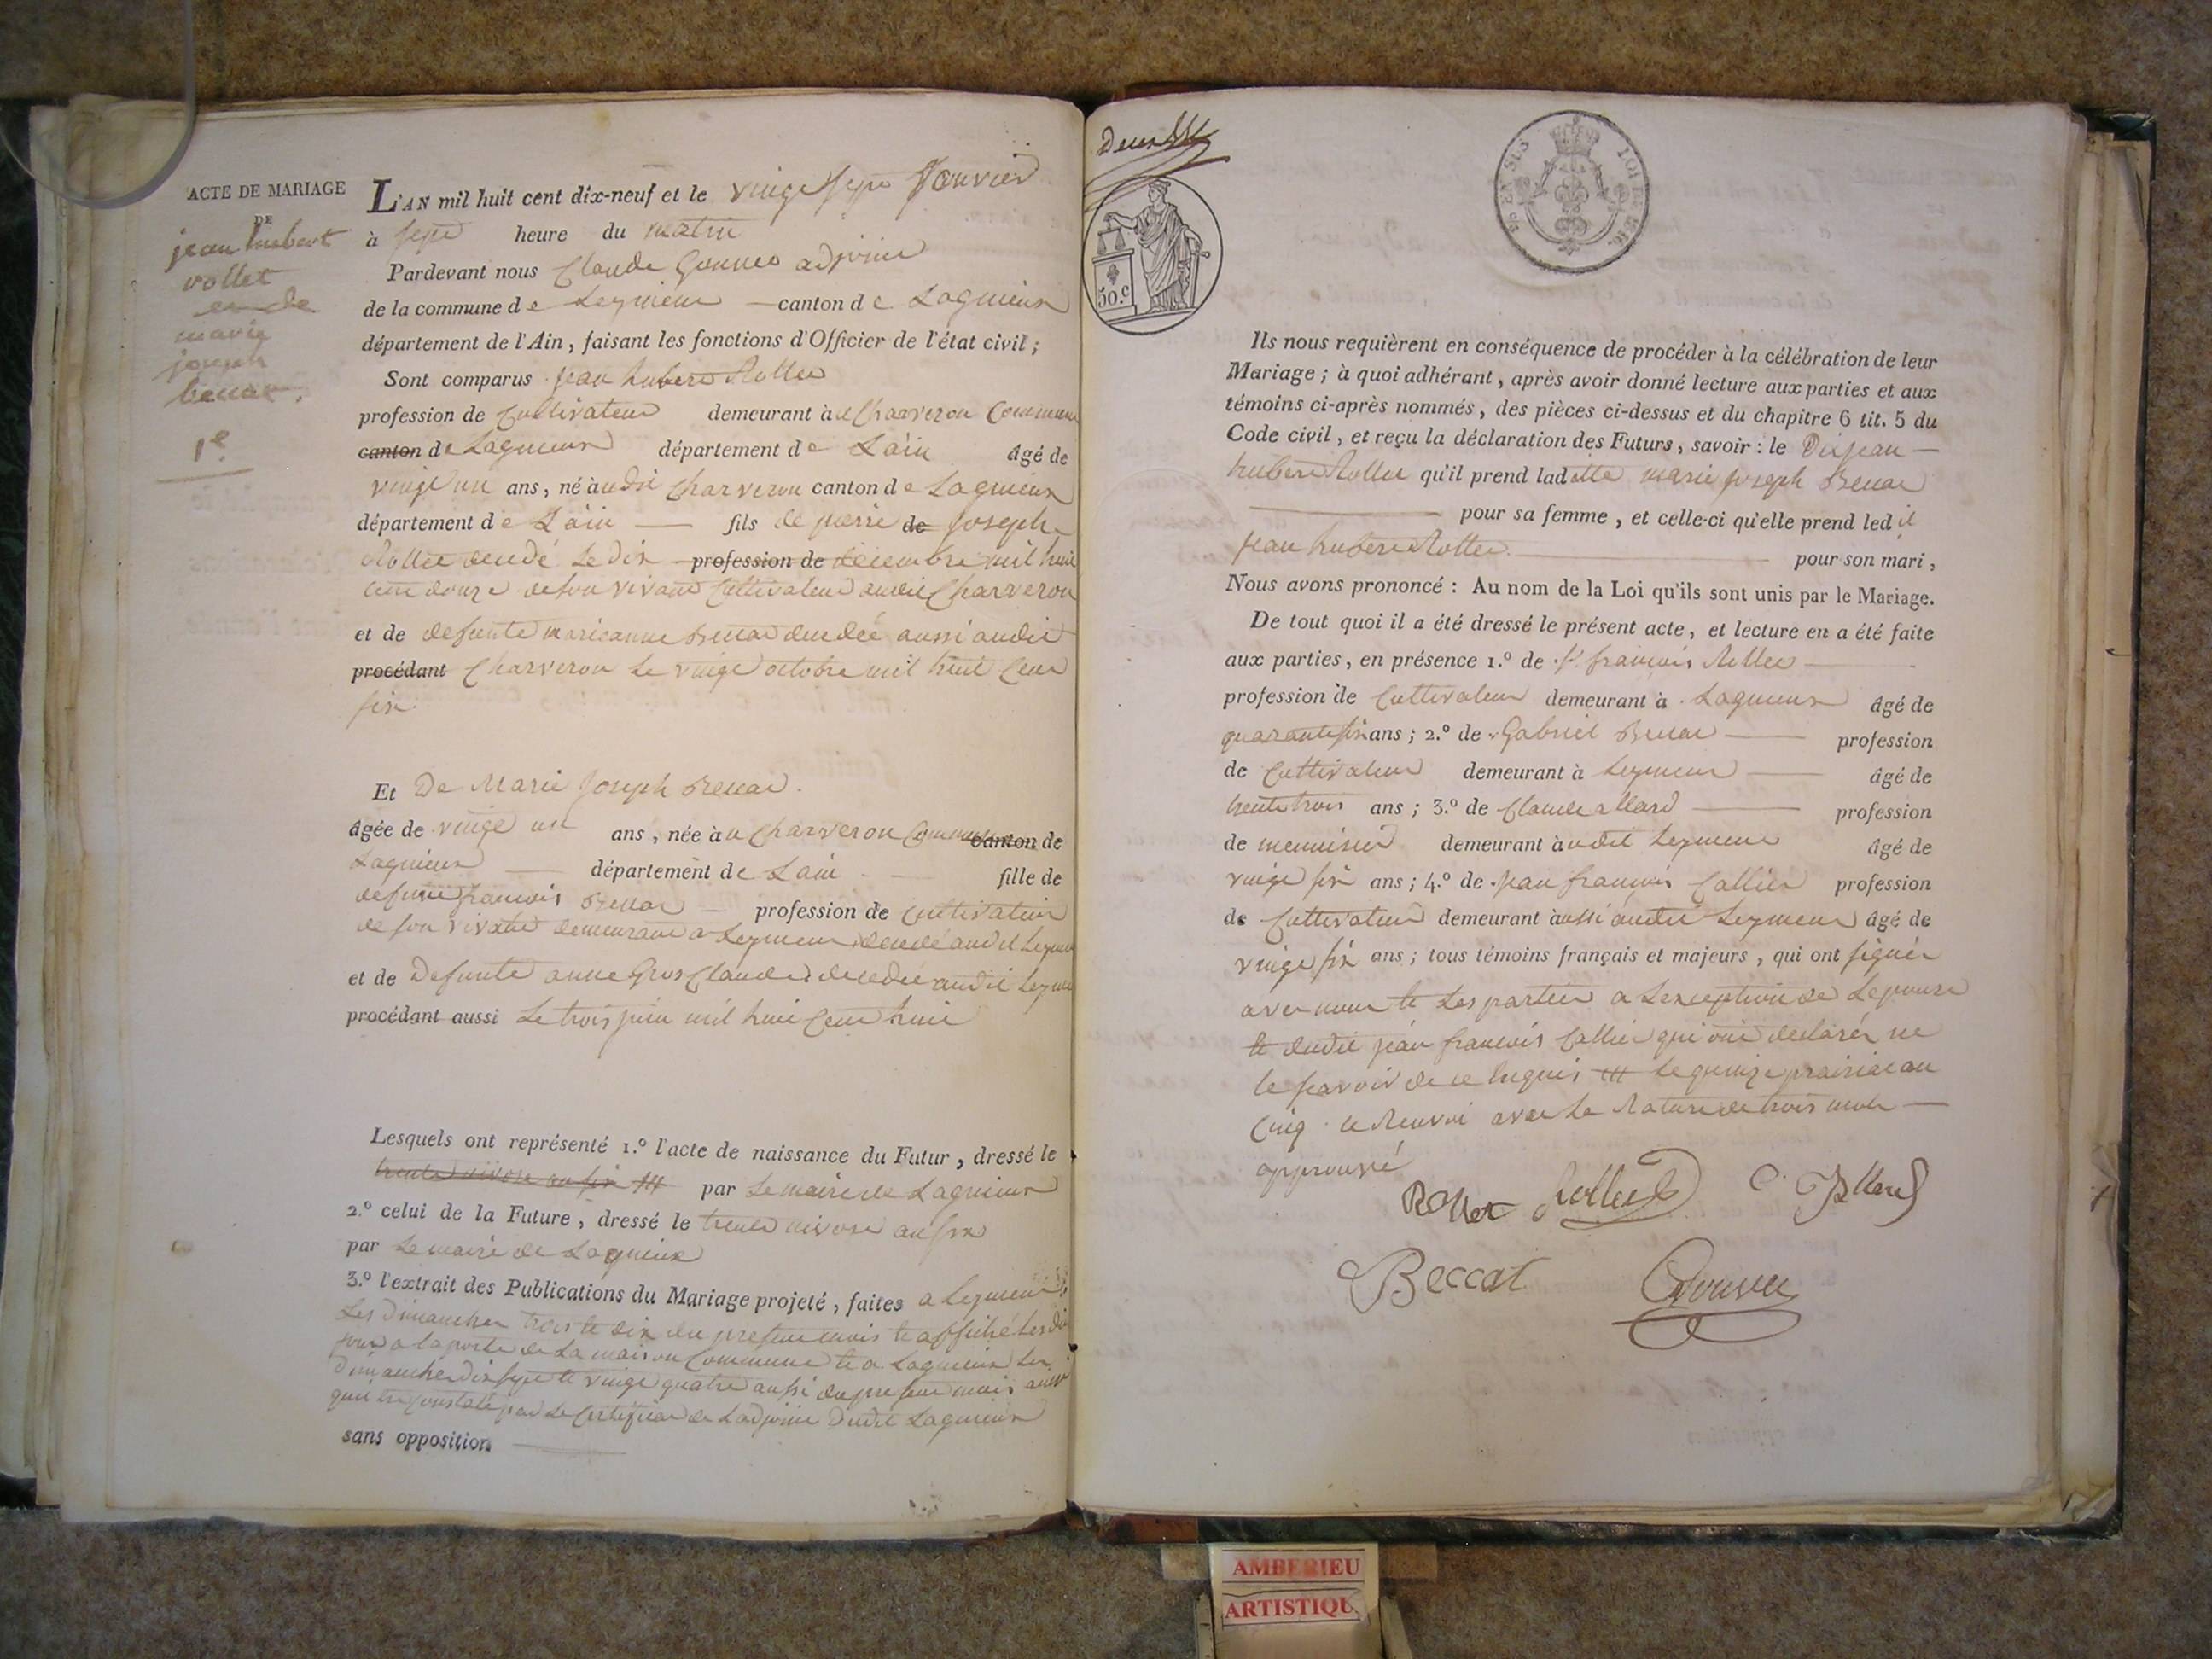 ACTE DE MARIAGE
DE
jean hubert
vollet
et de
marie
joseph
beccat.
1e.
L'AN mil huit cent dix-neuf et le vingt sept Janvier
à sept heure du matin
Pardevant nous Claude adjoint
de la commune de Leymieux canton de Lagnieux
département de l'Ain, faisant les fonctions d'Officier de l'état civil;
Sont comparus jean hubert Rollet
profession de Cultivateur demeurant à Charveron Commune
canton de Lagnieux département de Lain âgé de
vingt un ans, né audit Charveron canton de Lagnieux
département de Lain fils de pierre de joseph
Rollet decedé Le dix profession de decembre mil huit
cent douze de son vivant Cultivateur audit Charveron
et de defunte marieanne Beccat decedée aussi audit
procédant Charveron Le vingt octobre mil huit Cent
six.
Et De Marie Joseph Beccat.
âgée de vingt un ans, née à Charveron Commune canton de
Lagnieux département de Lain fille de
defunt francois Beccat profession de Cultivateur
de son vivant demeurant a Leymieux decedé audit
et de Defunte anne Gros Claude decedée audit
procédant aussi Le trois juin mil huit Cent huit
Lesquels ont représenté 1.º l'acte de naissance du Futur, dressé le
trente nivose an six par Le maire de Lagnieux
2.º celui de la Future, dressé le trente nivose an six
par Le maire de Lagnieux
3.º l'extrait des Publications du Mariage projeté, faites a Leymieux
Les Dimanches trois et dix du present mois et affiché Les dit
jour a la porte de La maison Commune et a Lagnieux Les
Dimanches dix sept et vingt quatre aussi du present mois
quil est Constaté par Le Certificat de Ladjoint Dudit Lagnieux
sans opposition
50.c
Ils nous requièrent en conséquence de procéder à la célébration de leur
Mariage; à quoi adhérant, après avoir donné lecture aux parties et aux
témoins ci-après nommés, des pièces ci-dessus et du chapitre 6 tit. 5 du
Code civil, et reçu la déclaration des Futurs, savoir: le Dit jean
hubert Rollet qu'il prend ladite marie joseph Beccat
pour sa femme, et celle-ci qu'elle prend ledit
jean hubert Rollet pour son mari,
Nous avons prononcé: Au nom de la Loi qu'ils sont unis par le Mariage.
De tout quoi il a été dressé le présent acte, et lecture en a été faite
aux parties, en présence 1.º de françois Rollet
profession de Cultivateur demeurant à Lagnieux âgé de
quarante six ans; 2.º de Gabriel Beccat profession
de Cultivateur demeurant à Leymieux âgé de
trente trois ans; 3.º de Claude allard profession
de menuisier demeurant audit Leymieux âgé de
vingt six ans; 4.º de jean françois Callier profession
de Cultivateur demeurant aussi audit Leymieux âgé de
vingt six ans; tous témoins français et majeurs, qui ont signés
avec nous et Les parties a Lexception de Lepouse
et dudit jean francois Callier qui ont declarés ne
le scavoir de ce Enquis Le quinze prairial an
Cinq Le Renvoi avec La Rature de trois mots
approuvé
Rollet Rollet C. Allard
Beccat
AMBERIEU
ARTISTIQU